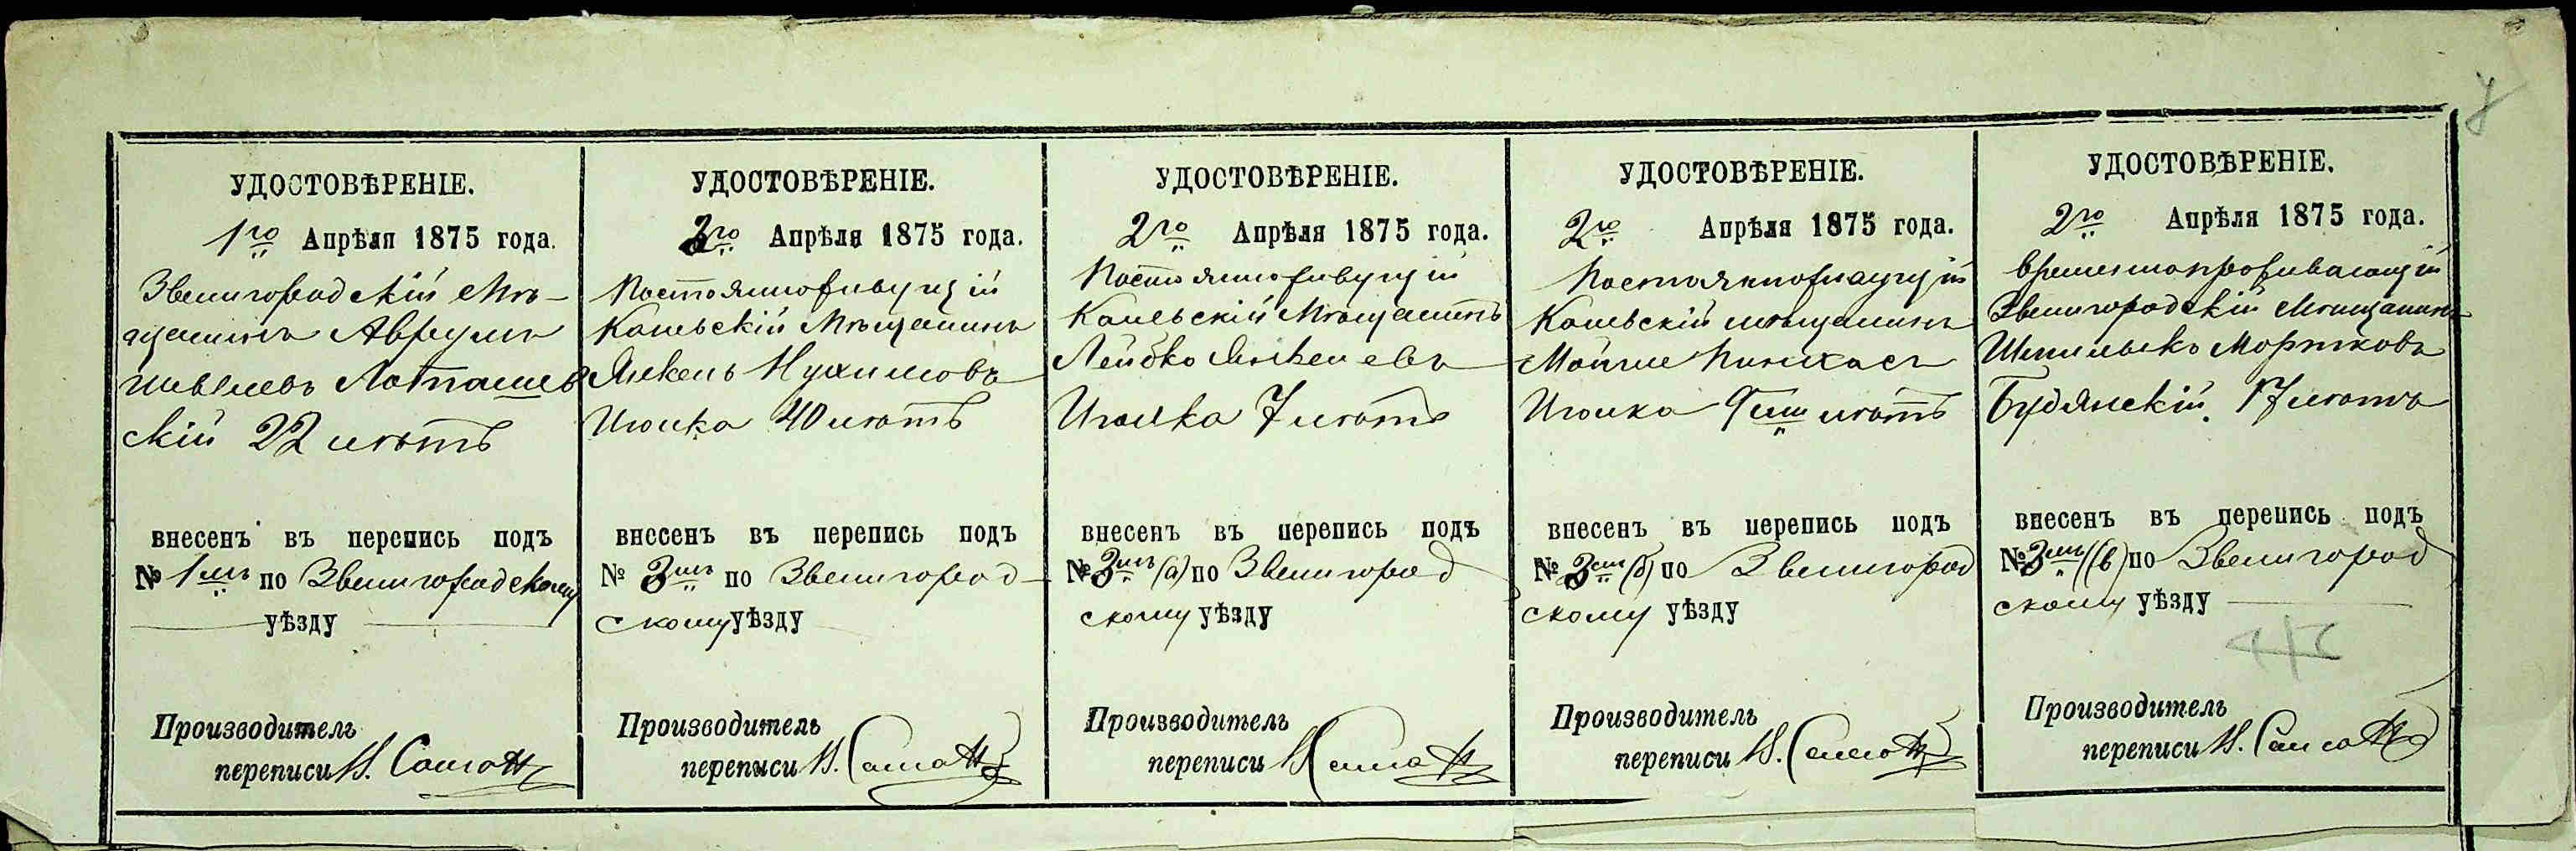 УДОСТОВѢРЕНІЕ.
1го Апрѣля 1875 года.
Звенигородскій Мѣ-
щанинъ Аврумъ
Лоташев
скій 22 лѣтъ
внесенъ въ перепись подъ
№ 1мъ по Звенигородскому
уѣзду
Производитель
переписи
УДОСТОВѢРЕНІЕ.
2го Апрѣля 1875 года.
Постоянноживущій
Каневскій Мѣщанинъ
Янкель Нухимовъ
Иголка 40 лѣтъ
внесенъ въ перепись подъ
№ 3мъ по Звенигород-
скому уѣзду
Производитель
переписи
УДОСТОВѢРЕНІЕ.
2го Апрѣля 1875 года.
Постоянноживущій
Каневскій Мѣщанинъ
Лейбко Янкелевъ
Иголка 7 лѣтъ
внесенъ въ перепись подъ
№ 3мъ (а) по Звенигород
скому уѣзду
Производитель
переписи
УДОСТОВѢРЕНІЕ.
2го Апрѣля 1875 года.
Каневскій мѣщанинъ
Мойше Пинхасъ
Иголка лѣтъ
внесенъ въ перепись подъ
№ 3мъ (б) по Звенигород
скому уѣзду
Производитель
переписи
УДОСТОВѢРЕНІЕ.
2го Апрѣля 1875 года.
Временнопроживающій
Звенигородскій Мѣщанинъ
Шмилько Мортковъ
Будянскій. 17 лѣтъ
внесенъ въ перепись подъ
№ 3мъ (в) по Звенигород
скому уѣзду
Производитель
переписи